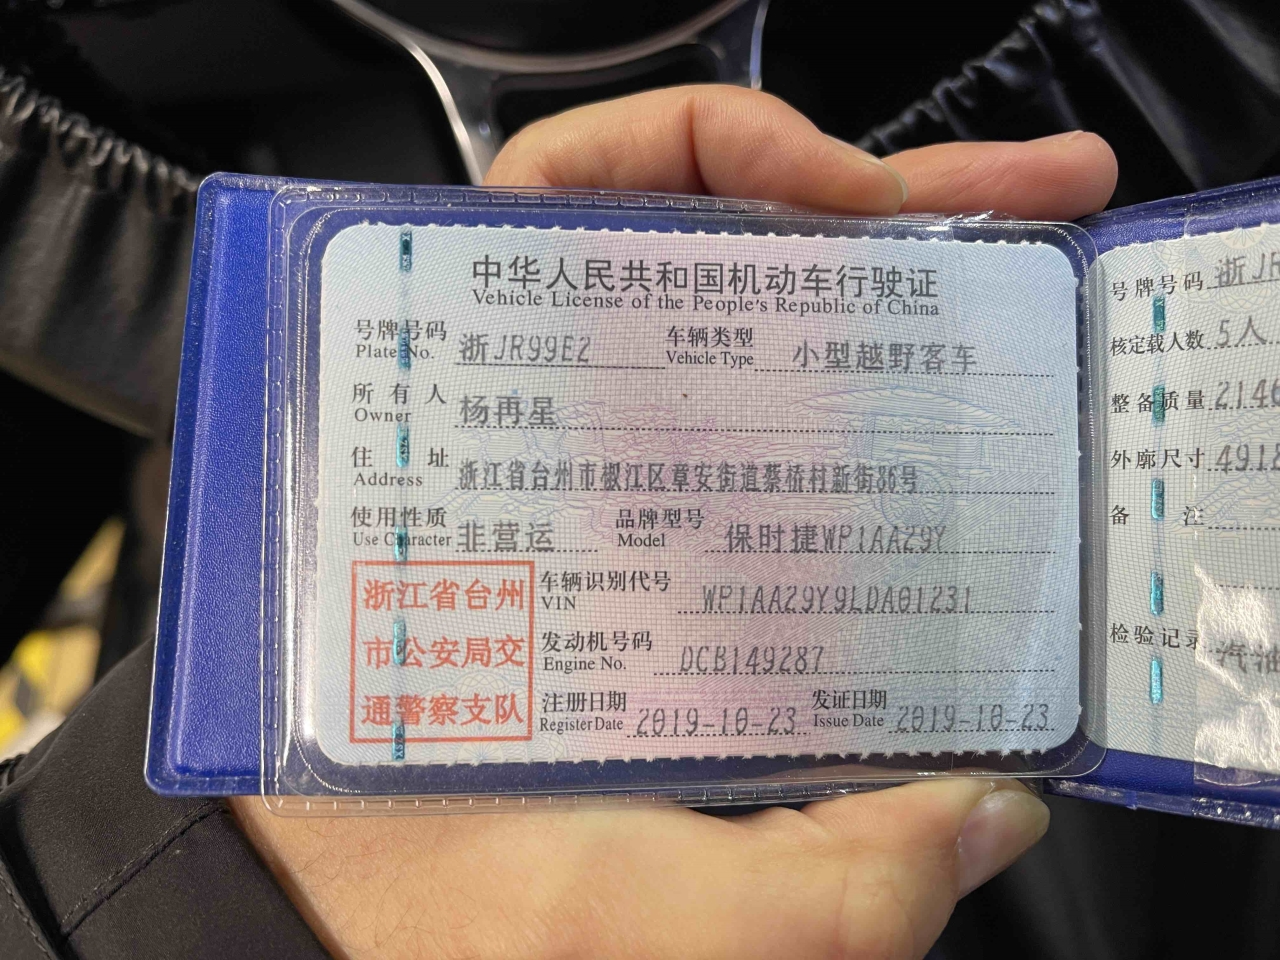 中华人民共和国机动车行驶证
Vehicle License of the People's Republic of China
号牌号码 Plate No. 浙JR99E2 车辆类型 Vehicle Type 小型越野客车
所有人 Owner 杨再星
住址 Address 浙江省台州市椒江区章安街道蔡桥村新街86号
使用性质 Use Character 非营运 品牌型号 Model 保时捷WP1AA29Y
浙江省台州
市公安局交
通警察支队
车辆识别代号 VIN WP1AA29Y9LDA01231
发动机号码 Engine No. DCB149287
注册日期 Register Date 2019-10-23 发证日期 Issue Date 2019-10-23
号牌号码 浙JR
核定载人数 5人
整备质量 214
外廓尺寸 491
备注
检验记录 汽油